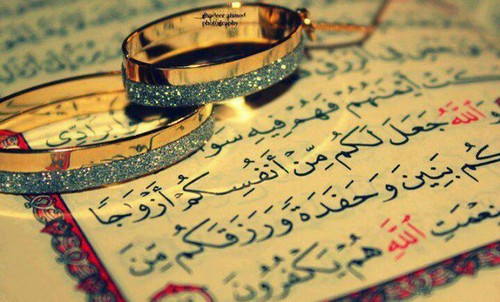 ghadeer ahmed
photography
بِرَآدِّى
كَتْ أَيْمَٰنُهُمْ فَهُمْ فِيهِ سَوَ
ٱللَّهُ جَعَلَ لَكُم مِّنْ أَنفُسِكُمْ أَزْوَٰجًا
كُم بَنِينَ وَحَفَدَةً وَرَزَقَكُم مِّنَ
نِعْمَتِ ٱللَّهِ هُمْ يَكْفُرُونَ